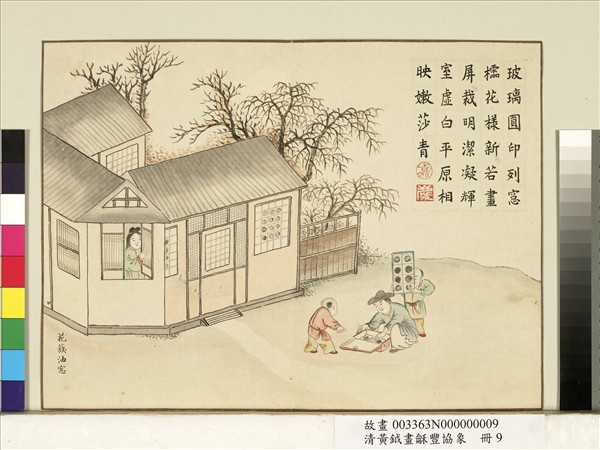 玻璃圓印列窓
櫺花樣新若畫
屏裁明潔凝輝
室虛白平原相
映嫩莎青
花簇油窓
故畫 003363N000000009
清黃鉞畫龢豐協象　冊 9